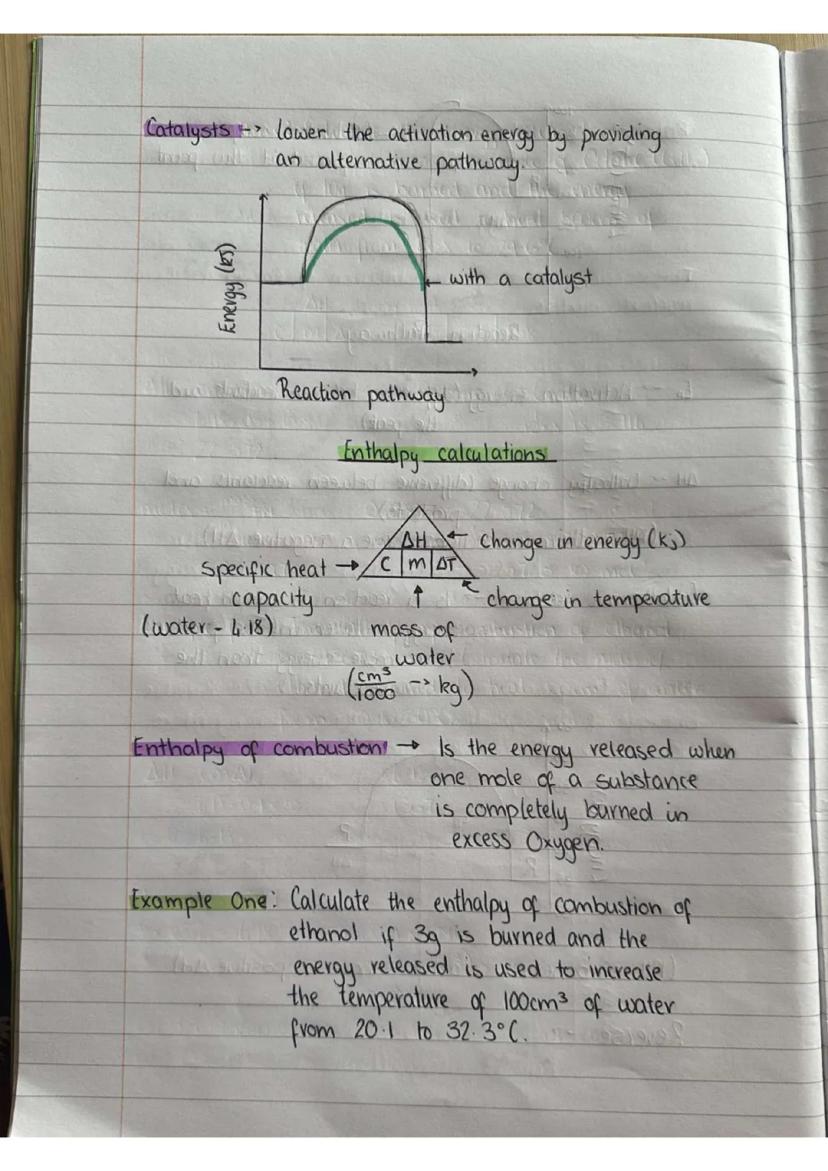 Catalysts -> lower the activation energy by providing
an alternative pathway.
Energy (kJ)
with a catalyst
Reaction pathway
Enthalpy calculations
ΔH ← change in energy (kJ)
Specific heat → C m ΔT
capacity
(water - 4.18)
change in temperature
mass of
water
(cm³/1000 -> kg)
Enthalpy of combustion → Is the energy released when
one mole of a substance
is completely burned in
excess Oxygen.
Example One: Calculate the enthalpy of combustion of
ethanol if 3g is burned and the
energy released is used to increase
the temperature of 100cm³ of water
from 20.1 to 32.3°C.